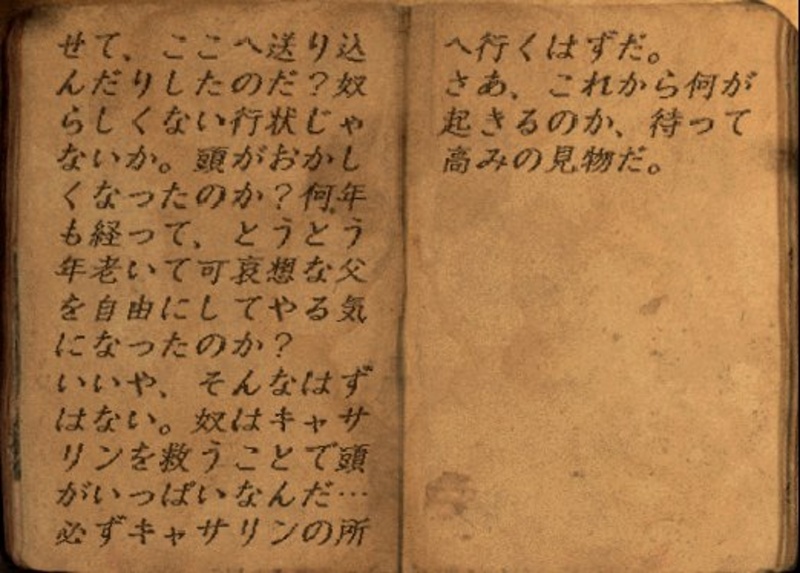 せて、ここへ送り込
んだりしたのだ?奴
らしくない行状じゃ
ないか。頭がおかし
くなったのか?何年
も経って、とうとう
年老いて可哀想な父
を自由にしてやる気
になったのか?
いいや、そんなはず
はない。奴はキャサ
リンを救うことで頭
がいっぱいなんだ…
必ずキャサリンの所
へ行くはずだ。
さあ、これから何が
起きるのか、待って
高みの見物だ。